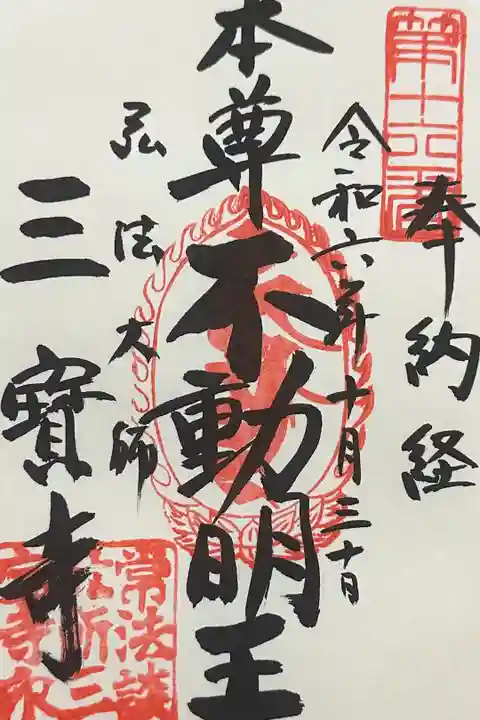 奉納経
令和六年十月三十日
本尊不動明王
弘法大師
三寳寺